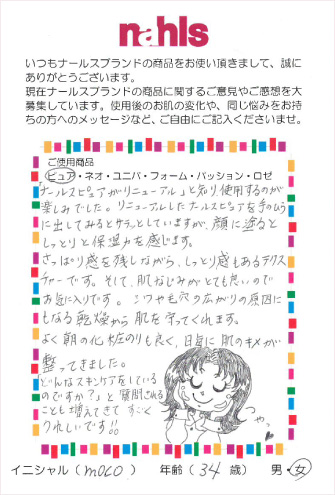 nahls
いつもナールスブランドの商品をお使い頂きまして、誠に
ありがとうございます。
現在ナールスブランドの商品に関するご意見やご感想を大
募集しています。使用後のお肌の変化や、同じ悩みをお持
ちの方へのメッセージなど、ご自由にご記入くださいませ。
ご使用商品
ピュア・ネオ・ユニバ・フォーム・パッション・ロゼ
ナールスピュアがリニューアルと知り使用するのが
楽しみでした。リニューアルしたナールスピュアを手のひら
に出してみるとサラッとしていますが、顔に塗ると
しっとりと保湿力を感じます。
さっぱり感を残しながら、しっとり感もあるテクス
チャーです。そして、肌なじみがとても良いので
お気に入りです。シワや毛穴の広がりの原因に
もなる乾燥から肌を守ってくれます。
よく朝の化粧のりも良く、日毎に肌のキメが
整ってきました。
「どんなスキンケアをしている
のですか?」と質問される
ことも増えてきてすごく
うれしいです!!
イニシャル(moco) 年齢(34歳) 男・女